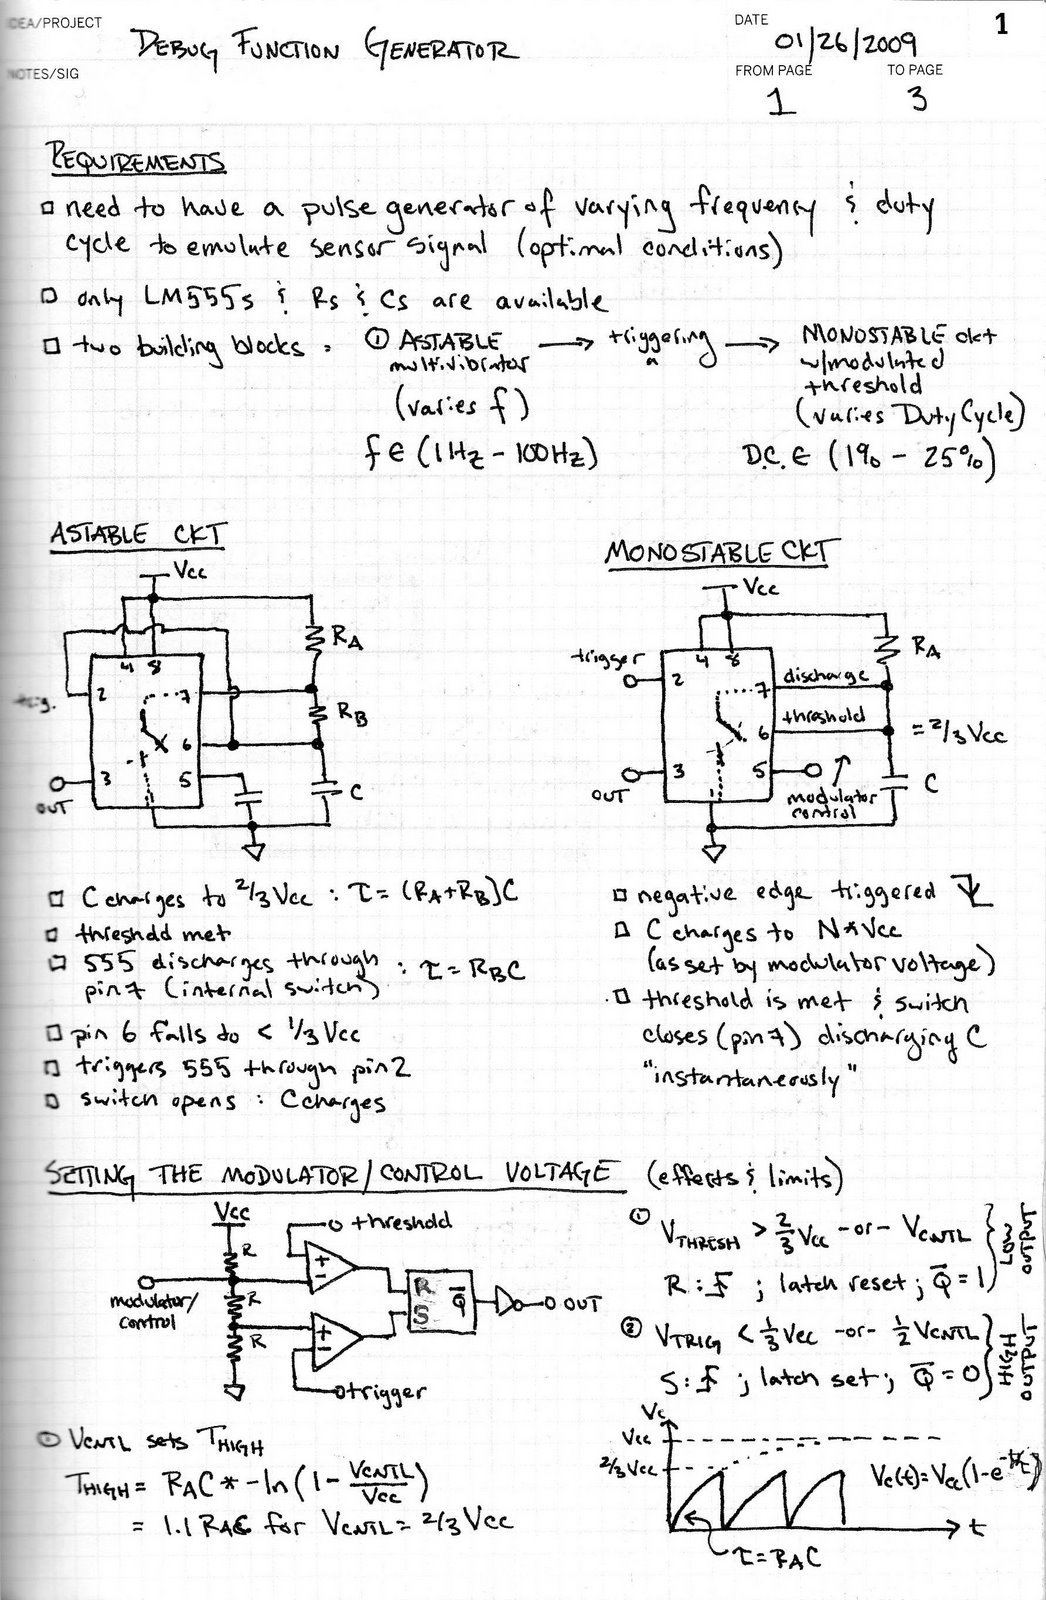 IDEA/PROJECT
DEBUG FUNCTION GENERATOR
NOTES/SIG
DATE
01/26/2009
FROM PAGE
TO PAGE
1
3
1
REQUIREMENTS
need to have a pulse generator of varying frequency & duty
cycle to emulate sensor signal (optimal conditions)
only LM555s & Rs & Cs are available
two building blocks :
① ASTABLE → triggering → MONOSTABLE ckt
multivibrator a w/modulated
threshold
(varies f) (varies Duty Cycle)
f ∈ (1Hz - 100Hz) D.C. ∈ (1% - 25%)
ASTABLE CKT
Vcc
RA
4 8
2
7
trig.
RB
6
3
5
C
OUT
MONOSTABLE CKT
Vcc
trigger
4 8
RA
2
7
discharge
threshold
6
= 2/3 Vcc
3
5
C
OUT
modulator
control
C charges to 2/3 Vcc : τ = (RA+RB)C
threshold met
555 discharges through
pin 7 (internal switch) : τ = RBC
pin 6 falls to < 1/3 Vcc
triggers 555 through pin 2
switch opens : C charges
negative edge triggered
C charges to N*Vcc
(as set by modulator voltage)
threshold is met & switch
closes (pin 7) discharging C
"instantaneously"
SETTING THE MODULATOR/CONTROL VOLTAGE (effects & limits)
Vcc
threshold
R
+
-
modulator/
control
R
R
S
Q̅
OUT
R
+
-
trigger
① VTHRESH > 2/3 Vcc -or- VCNTL
R: ; latch reset; Q̅ = 1
OUTPUT
LOW
② VTRIG < 1/3 Vcc -or- 1/2 VCNTL
S: ; latch set; Q̅ = 0
OUTPUT
HIGH
VCNTL sets THIGH
THIGH = RAC * -ln(1 - VCNTL/Vcc)
= 1.1 RAC for VCNTL = 2/3 Vcc
Vc
Vcc
2/3 Vcc
Vc(t) = Vcc(1-e^-t/τ)
t
τ = RAC